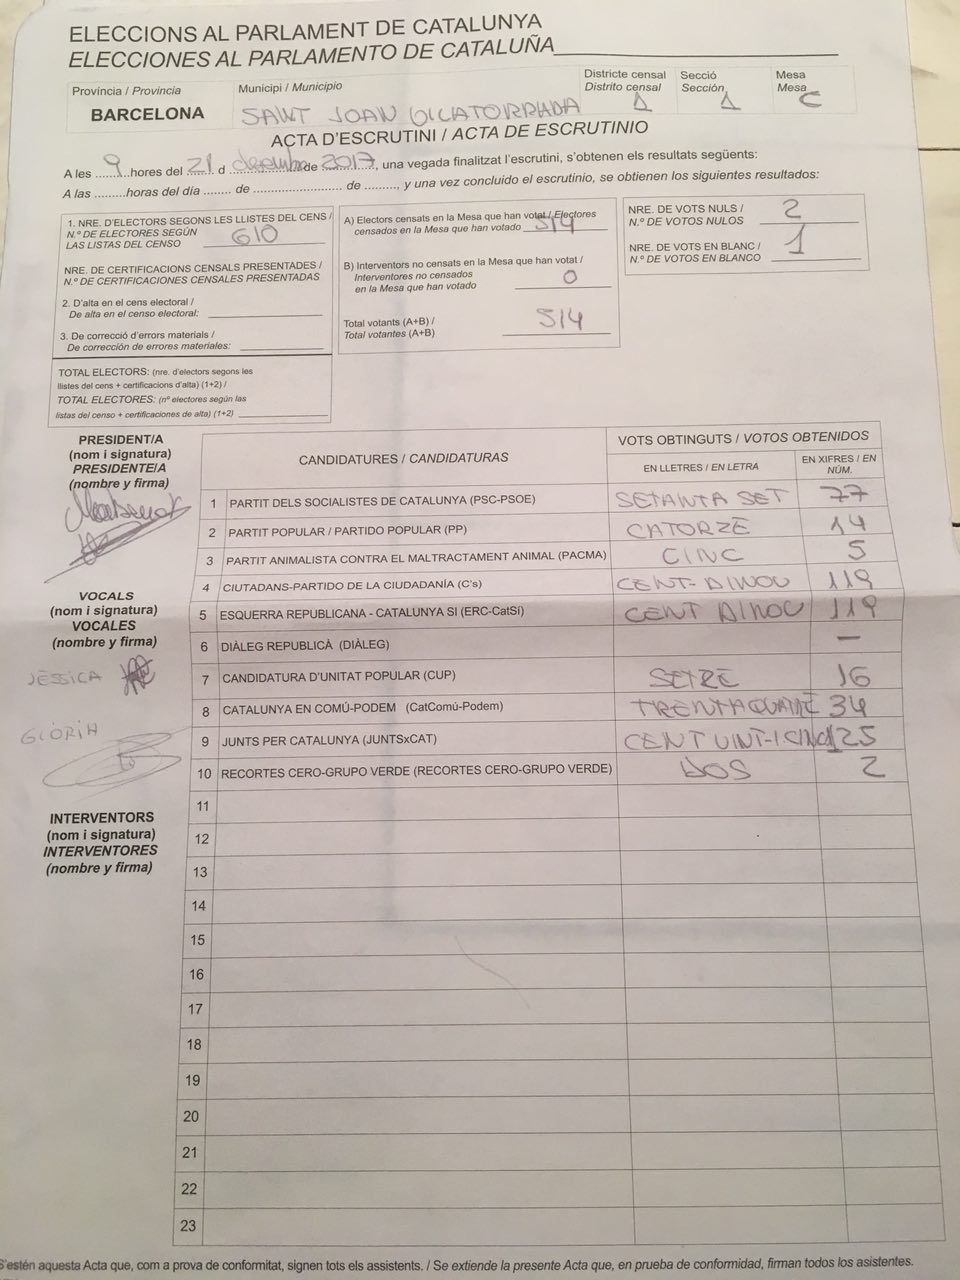 ELECCIONS AL PARLAMENT DE CATALUNYA
ELECCIONES AL PARLAMENTO DE CATALUÑA
Província / Provincia
BARCELONA
Municipi / Municipio
SANT JOAN VILATORRADA
Districte censal
Distrito censal
1
Secció
Sección
1
Mesa
Mesa
C
ACTA D'ESCRUTINI / ACTA DE ESCRUTINIO
A les 9 hores del 21 d desembre de 2017, una vegada finalitzat l'escrutini, s'obtenen els resultats següents:
A las .........horas del día ........ de ........................ de ........., y una vez concluido el escrutinio, se obtienen los siguientes resultados:
1. NRE. D'ELECTORS SEGONS LES LLISTES DEL CENS /
N.º DE ELECTORES SEGÚN
LAS LISTAS DEL CENSO 610
NRE. DE CERTIFICACIONS CENSALS PRESENTADES /
N.º DE CERTIFICACIONES CENSALES PRESENTADAS
2. D'alta en el cens electoral /
De alta en el censo electoral:
3. De correcció d'errors materials /
De corrección de errores materiales:
TOTAL ELECTORS: (nre. d'electors segons les
llistes del cens + certificacions d'alta) (1+2) /
TOTAL ELECTORES: (nº electores según las
listas del censo + certificaciones de alta) (1+2)
A) Electors censats en la Mesa que han votat / Electores
censados en la Mesa que han votado 514
B) Interventors no censats en la Mesa que han votat /
Interventores no censados
en la Mesa que han votado 0
Total votants (A+B) /
Total votantes (A+B) 514
NRE. DE VOTS NULS /
N.º DE VOTOS NULOS 2
NRE. DE VOTS EN BLANC /
N.º DE VOTOS EN BLANCO 1
PRESIDENT/A
(nom i signatura)
PRESIDENTE/A
(nombre y firma)
VOCALS
(nom i signatura)
VOCALES
(nombre y firma)
JESSICA
GLÒRIA
INTERVENTORS
(nom i signatura)
INTERVENTORES
(nombre y firma)
CANDIDATURES / CANDIDATURAS
VOTS OBTINGUTS / VOTOS OBTENIDOS
EN LLETRES / EN LETRA
EN XIFRES / EN
NÚM.
1 PARTIT DELS SOCIALISTES DE CATALUNYA (PSC-PSOE) SETANTA SET 77
2 PARTIT POPULAR / PARTIDO POPULAR (PP) CATORZE 14
3 PARTIT ANIMALISTA CONTRA EL MALTRACTAMENT ANIMAL (PACMA) CINC 5
4 CIUTADANS-PARTIDO DE LA CIUDADANÍA (C's) CENT-DINOU 119
5 ESQUERRA REPUBLICANA - CATALUNYA SI (ERC-CatSí) CENT DINOU 119
6 DIÀLEG REPUBLICÀ (DIÀLEG) —
7 CANDIDATURA D'UNITAT POPULAR (CUP) SETZE 16
8 CATALUNYA EN COMÚ-PODEM (CatComú-Podem) TRENTAQUATRE 34
9 JUNTS PER CATALUNYA (JUNTSxCAT) CENT VINT-I-CINC 125
10 RECORTES CERO-GRUPO VERDE (RECORTES CERO-GRUPO VERDE) DOS 2
11
12
13
14
15
16
17
18
19
20
21
22
23
S'estén aquesta Acta que, com a prova de conformitat, signen tots els assistents. / Se extiende la presente Acta que, en prueba de conformidad, firman todos los asistentes.